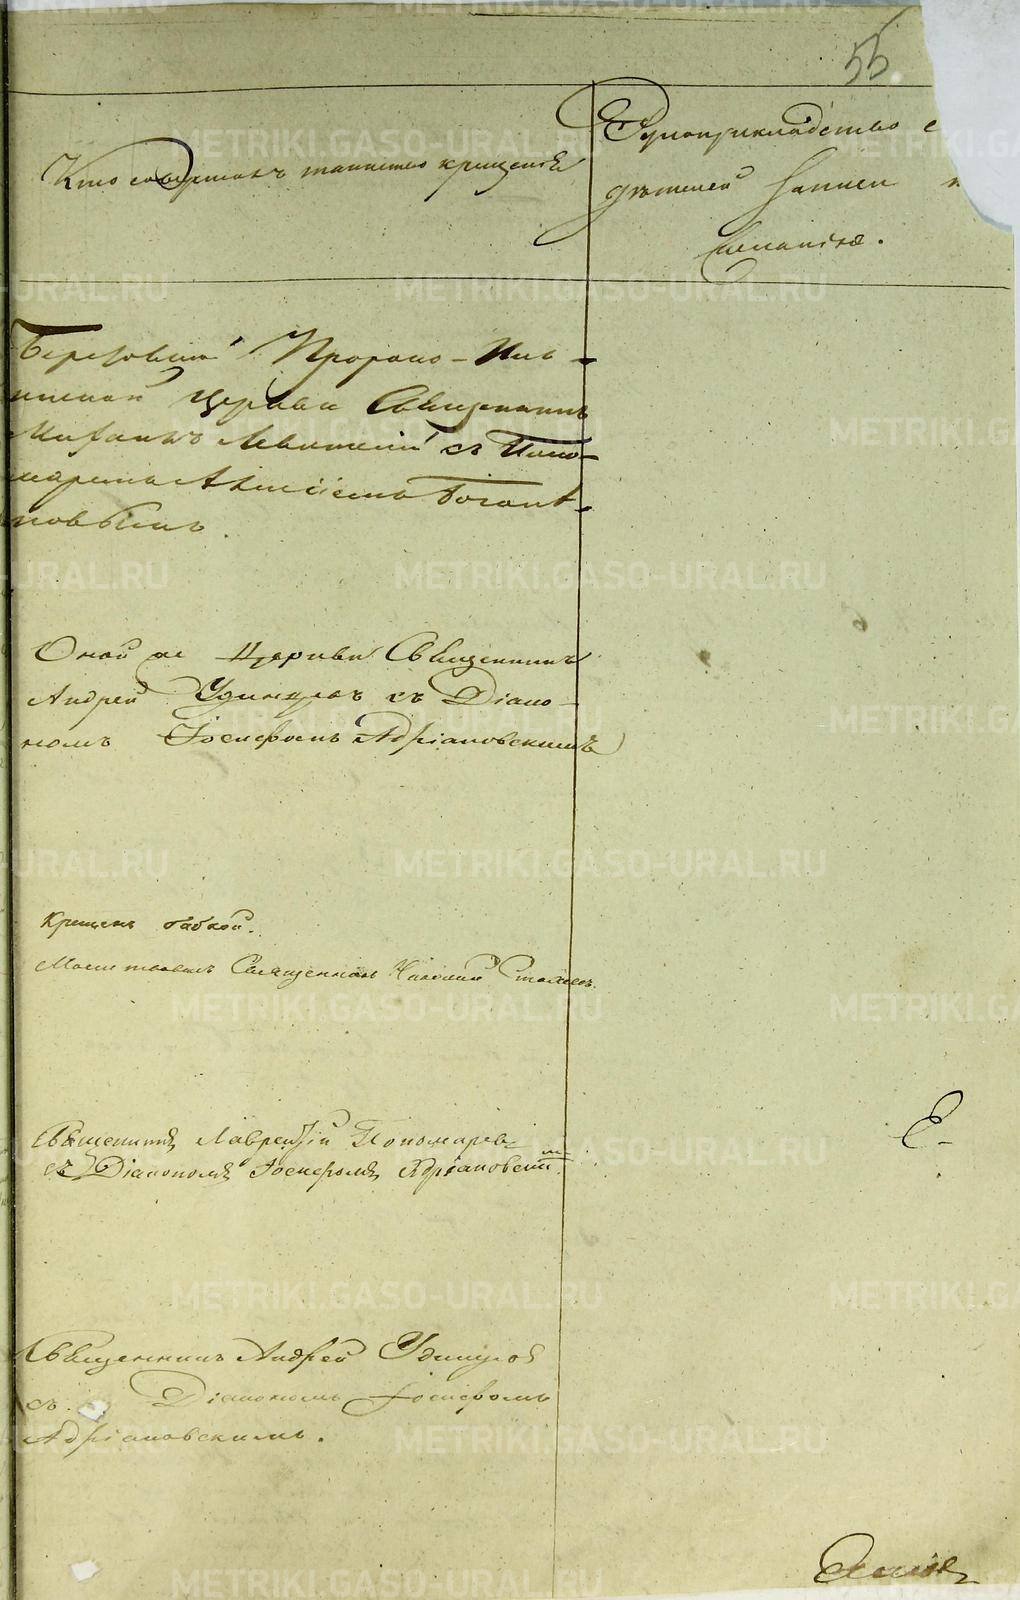 55
Кто совершалъ таинство крещенія
Рукоприкладство с
дѣтелей записи
желанію.
Березовской Пророко-Иль-
инской церкви Священникъ
Михаилъ Левитскій съ Поно-
маремъ Алексіемъ Богаты-
ровымъ.
Оной же Церкви Священникъ
Андрей Удинцовъ съ Діако-
номъ Іосифомъ Адріановскимъ
Крещенъ бабкой.
Молитвовалъ Священникъ Николай
Священникъ Лаврентій Пономаревъ
съ Діакономъ Іосифомъ Адріановскимъ
Священникъ Андрей Удинцовъ
съ Діакономъ Іосифомъ
Адріановскимъ.
Е.
METRIKI.GASO-URAL.RU